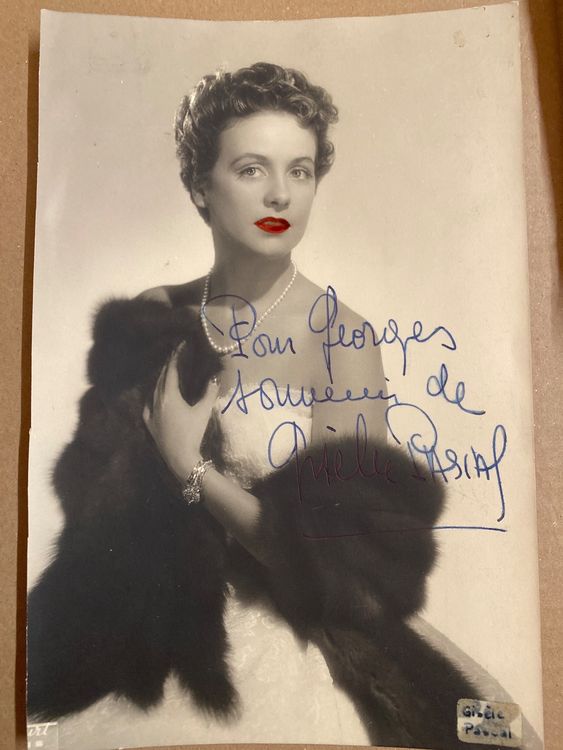 Pour Georges
souvenir de
Gisèle PASCAL
Gisèle
Pascal